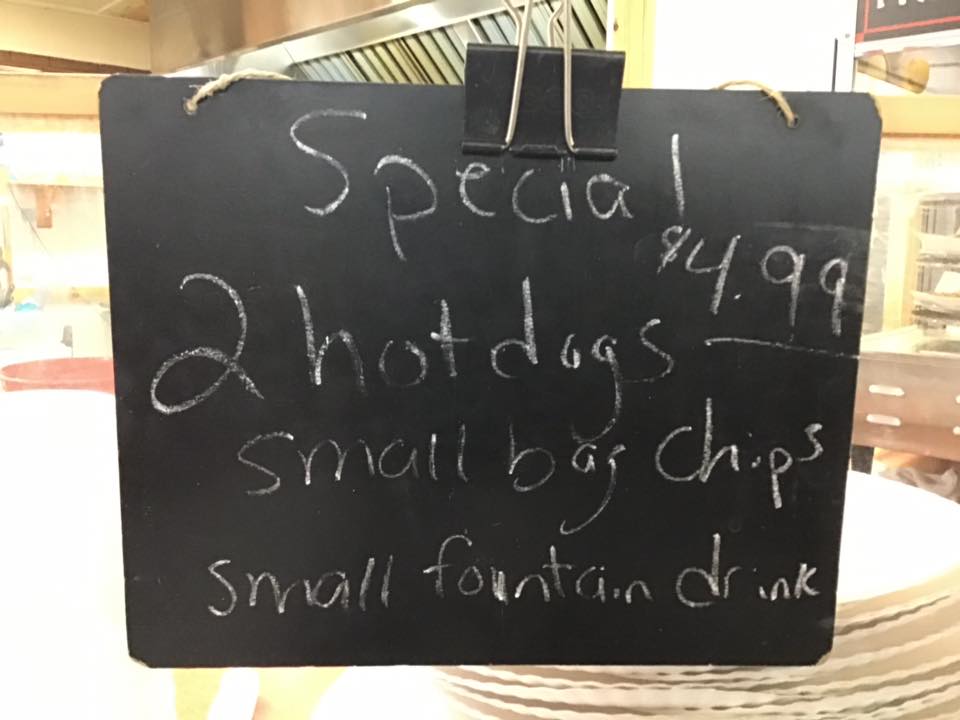 Special
$4.99
2 hotdogs
small bag chips
small fountain drink